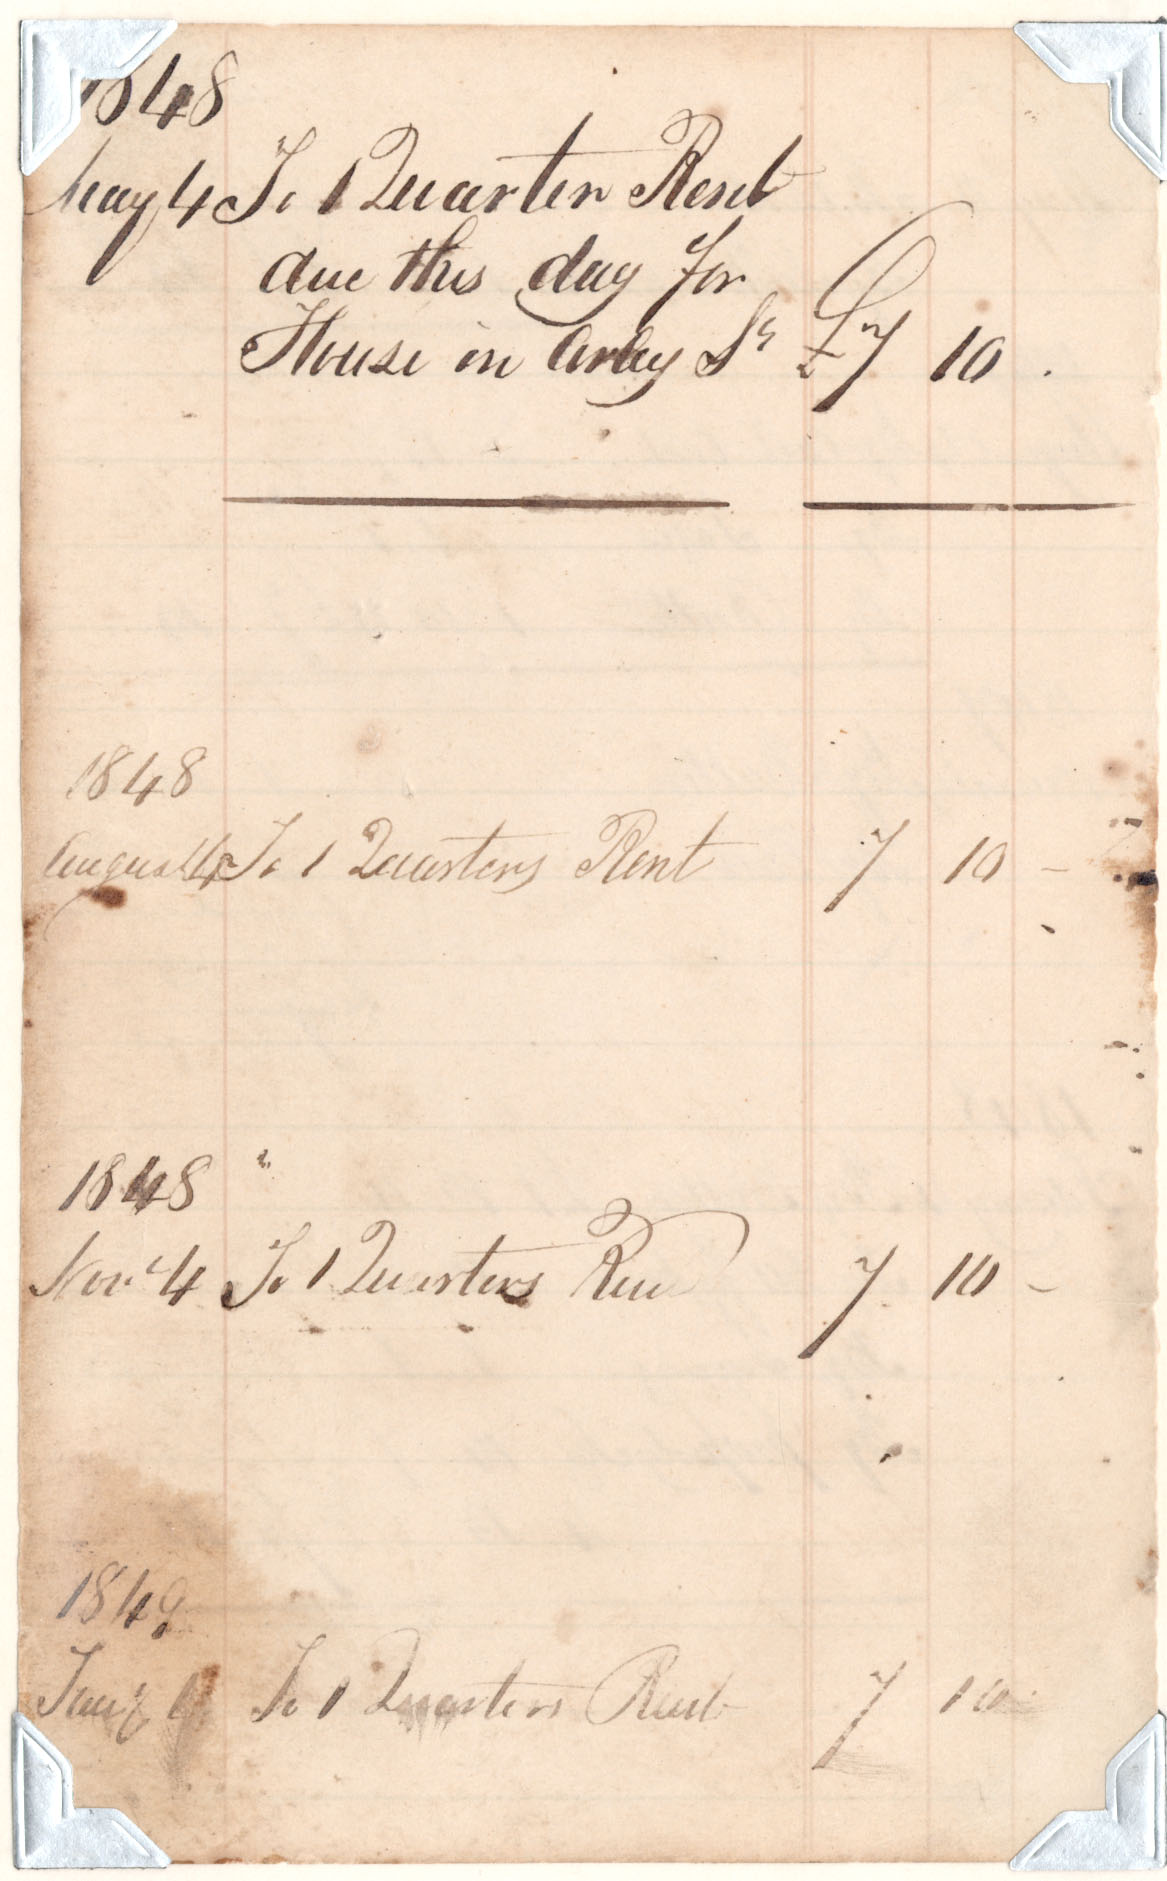 1848
May 4 To 1 Quarter Rent
due this day for
House in Arby St £7 10 .
1848
August 4 To 1 Quarters Rent 7 10 –
1848 "
Novr 4 To 1 Quarters Ren 7 10 –
1849
Jany To 1 Quarters Rent 7 10